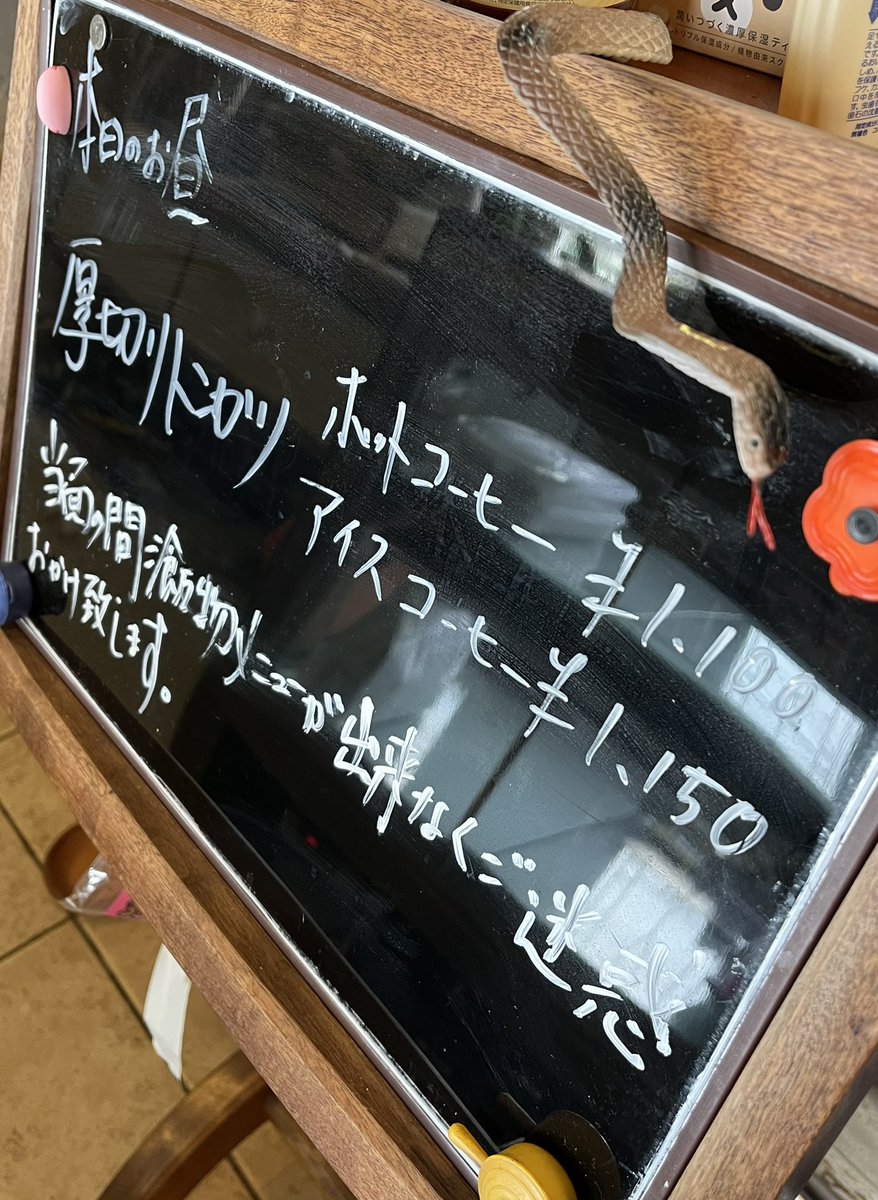 本日のお昼
厚切りトンカツ
ホットコーヒー ¥1,100
アイスコーヒー ¥1,150
当面の間 飲物メニューが出来なくご迷惑
おかけ致します。
潤いつづく濃厚保湿ティ
トリプル保湿成分/植物由来スク